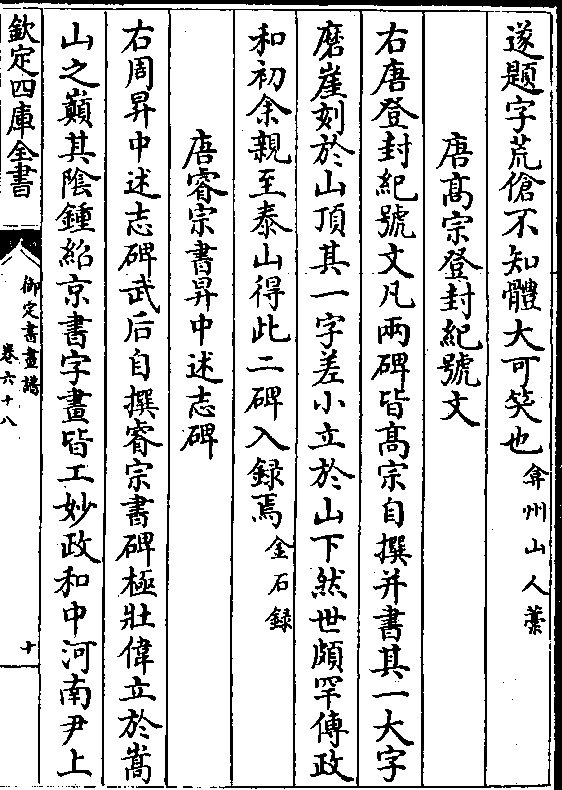 遂題字荒傖不知體大可笑也弇州山人藳
唐髙宗登封紀號文
右唐登封紀號文凡兩碑皆髙宗自撰并書其一大字
磨崖刻於山頂其一字差小立於山下然世頗罕傳政
和初余親至泰山得此二碑入録焉金石録
唐睿宗書昇中述志碑
右周昇中述志碑武后自撰睿宗書碑極壯偉立於嵩
山之巔其陰鍾紹京書字畫皆工妙政和中河南尹上
欽定四庫全書
御定書畫譜
卷六十八
十